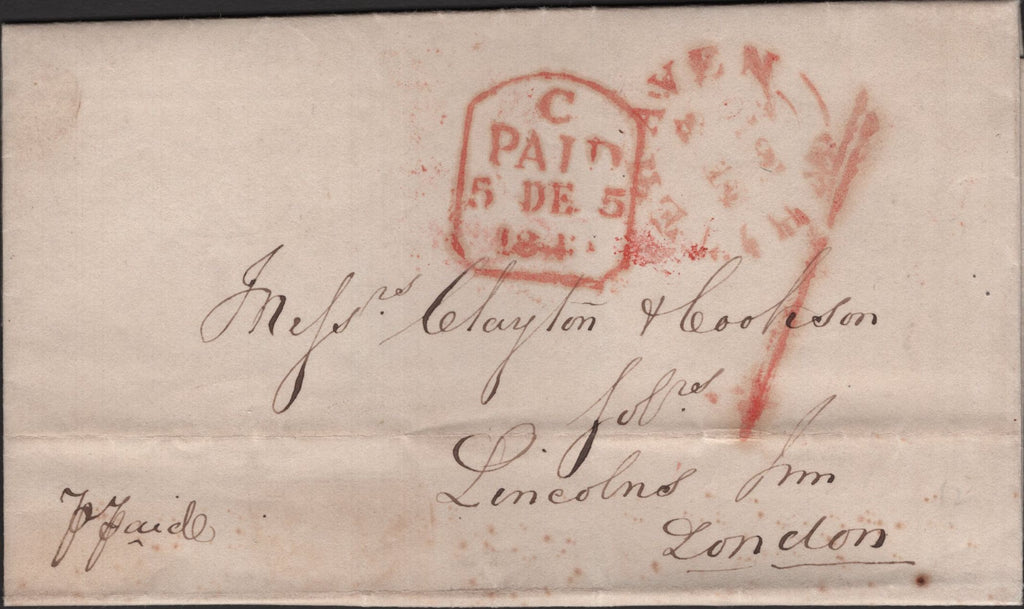 C
PAID
5 DE 5
Messrs Clayton & Cookson
Solrs
Lincoln's Inn
London
P Paid